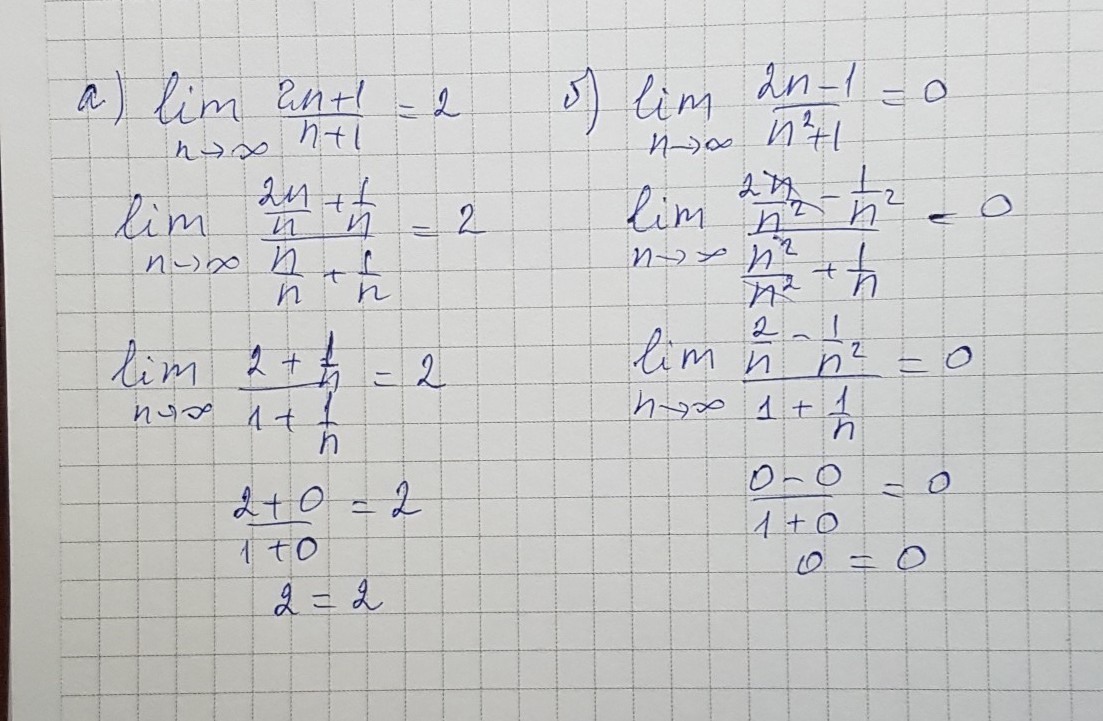 а) lim n→∞ (2n+1)/(n+1) = 2
lim n→∞ (2n/n + 1/n)/(n/n + 1/n) = 2
lim n→∞ (2 + 1/n)/(1 + 1/n) = 2
(2+0)/(1+0) = 2
2 = 2
б) lim n→∞ (2n-1)/(n²+1) = 0
lim n→∞ (2n/n² - 1/n²)/(n²/n² + 1/n) - 0
lim n→∞ (2/n - 1/n²)/(1 + 1/n) = 0
(0-0)/(1+0) = 0
0 = 0